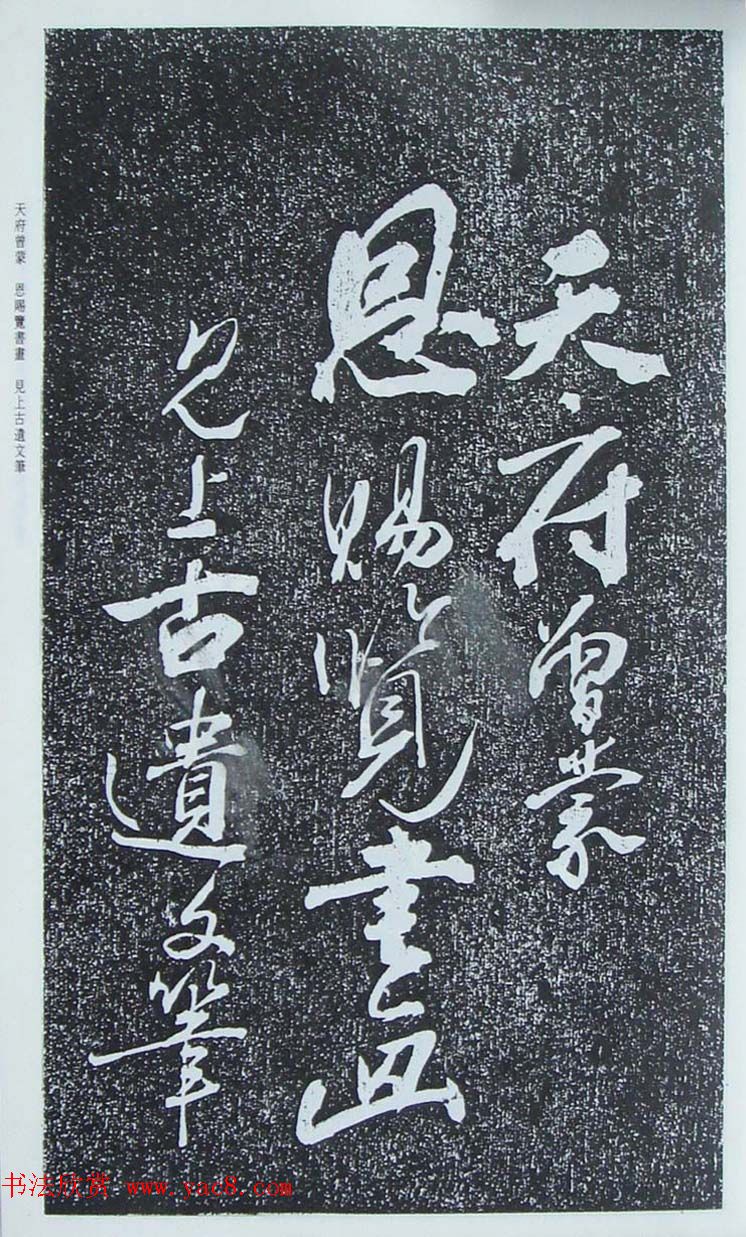 天府曾蒙
恩賜覽書畫
見上古遺文筆
天府曾蒙 恩賜覽書畫 見上古遺文筆
书法欣赏 www.yac8.com